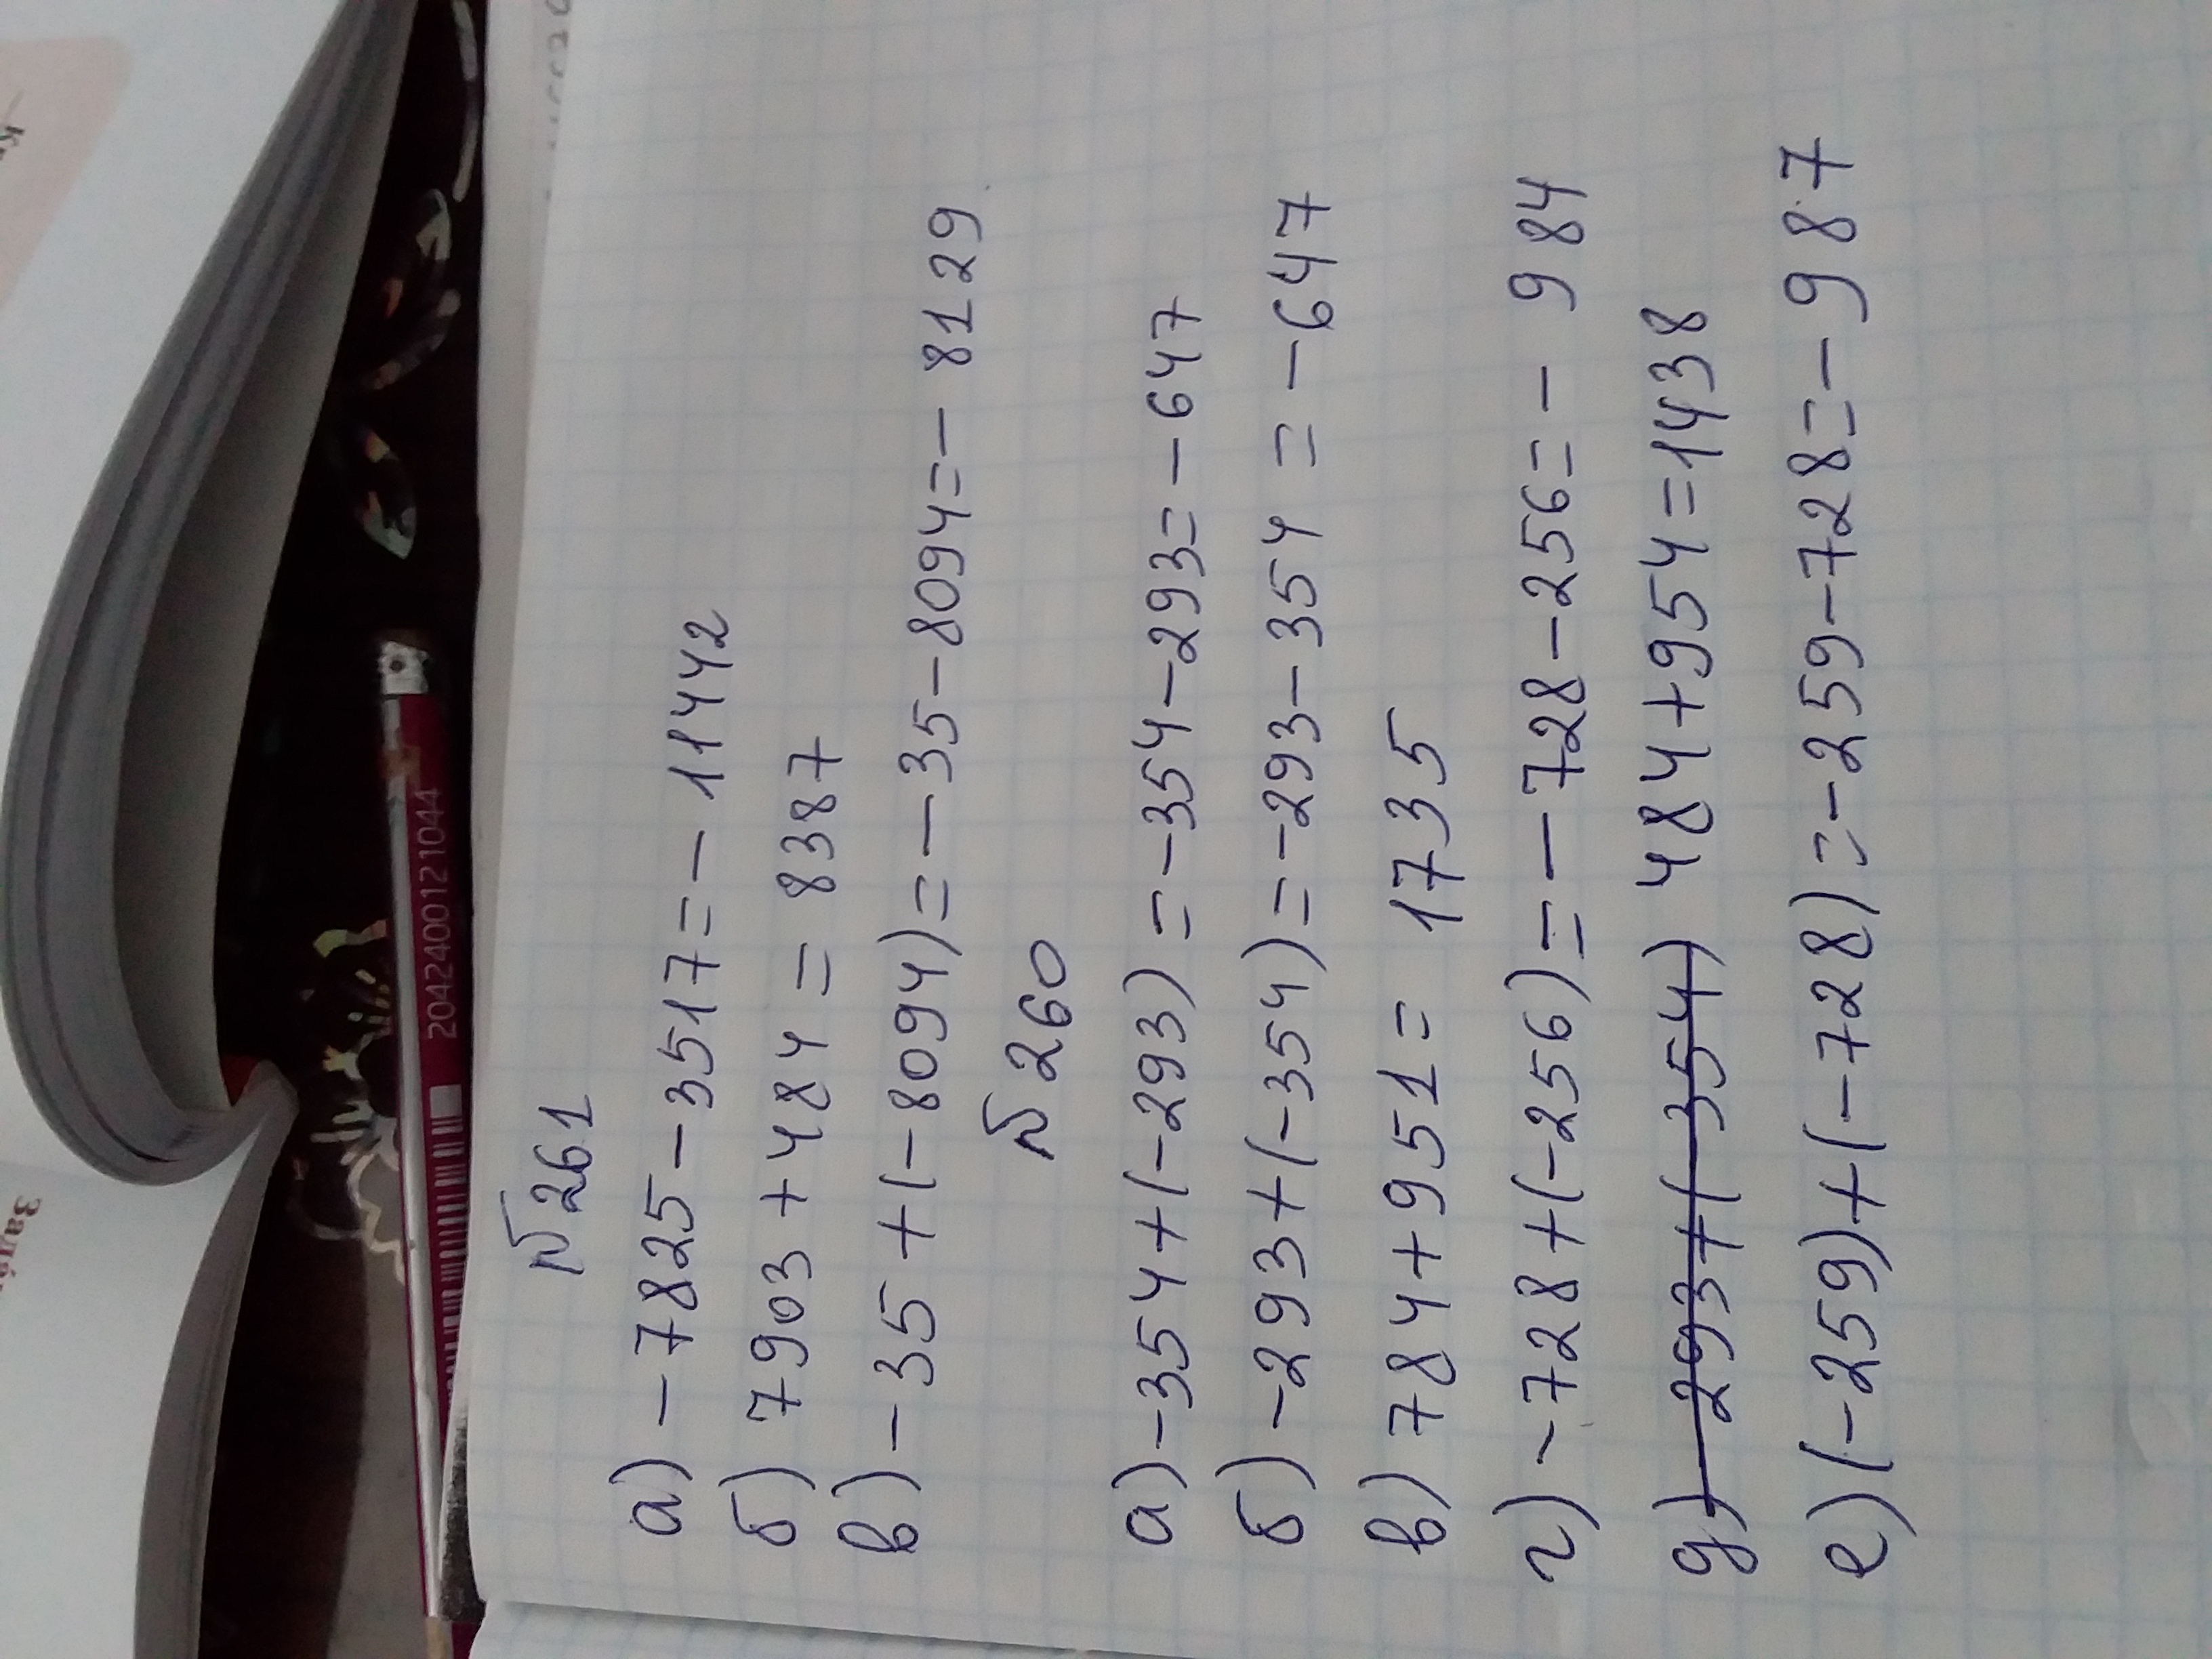 № 261
а) -7825-3517=-11442
б) 7903+484=8387
в) -35+(-8094)=-35-8094=-8129
№ 260
а) -354+(-293)=-354-293=-647
б) -293+(-354)=-293-354=-647
в) 784+951=1735
г) -728+(-256)=-728-256=-984
д) -293+(-354) 484+954=1438
е) (-259)+(-728)=-259-728=-987
2042400121044